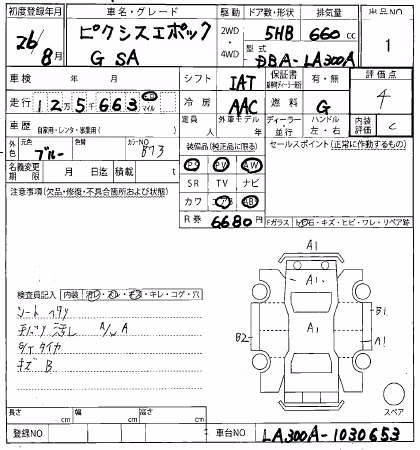 初度登録年月 車名・グレード 駆動 ドア数・形状 排気量 出品NO
26/8月 ピクシスエポック G SA 2WD 4WD 5HB 660cc 1
型式 DBA-LA300A
車検 年 月 シフト IAT 保証書 有・無 評価点 4
走行 12万5千663 km マイル 冷房 AAC 燃料 G
車歴 自家用・レンタ・事業用( ) 定員 人 外車モデル 年 ディーラー 並行 ハンドル 左・右 内装評価 C
外色 元色 ブルー 色替 カラーNO B73 装備品(純正品に限る) セールスポイント(正常に動作するもの)
名義変更期限 月 日迄 積載 t PS PW AW
注意事項(欠品・修復・不具合箇所および状態) SR TV ナビ
カワ エアB ABS
R券 6680円 Fガラス トビ石・キズ・ヒビ・ワレ・リペア跡
A1
A1
検査員記入 内装 汚レ・スレ・キズ・キレ・コゲ・穴
シートヘタリ A1 B1
B2 A1
タイヤ
キズB
スペア
長さ cm 幅 cm 高さ cm
登録NO 車台NO LA300A-1030653